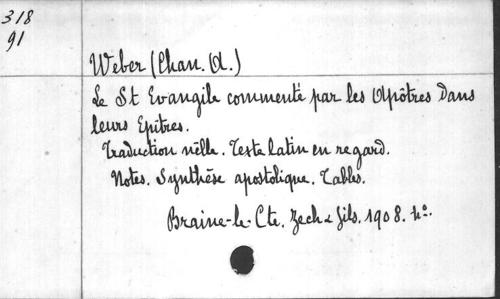 318
91
Weber (Chan. A.)
Le St Evangile commenté par les Apôtres dans
leurs Epitres.
Traduction nelle. Texte latin en regard.
Notes. Synthèse apostolique. Tables.
Braine-le-Cte. Zech & fils. 1908. 4o.